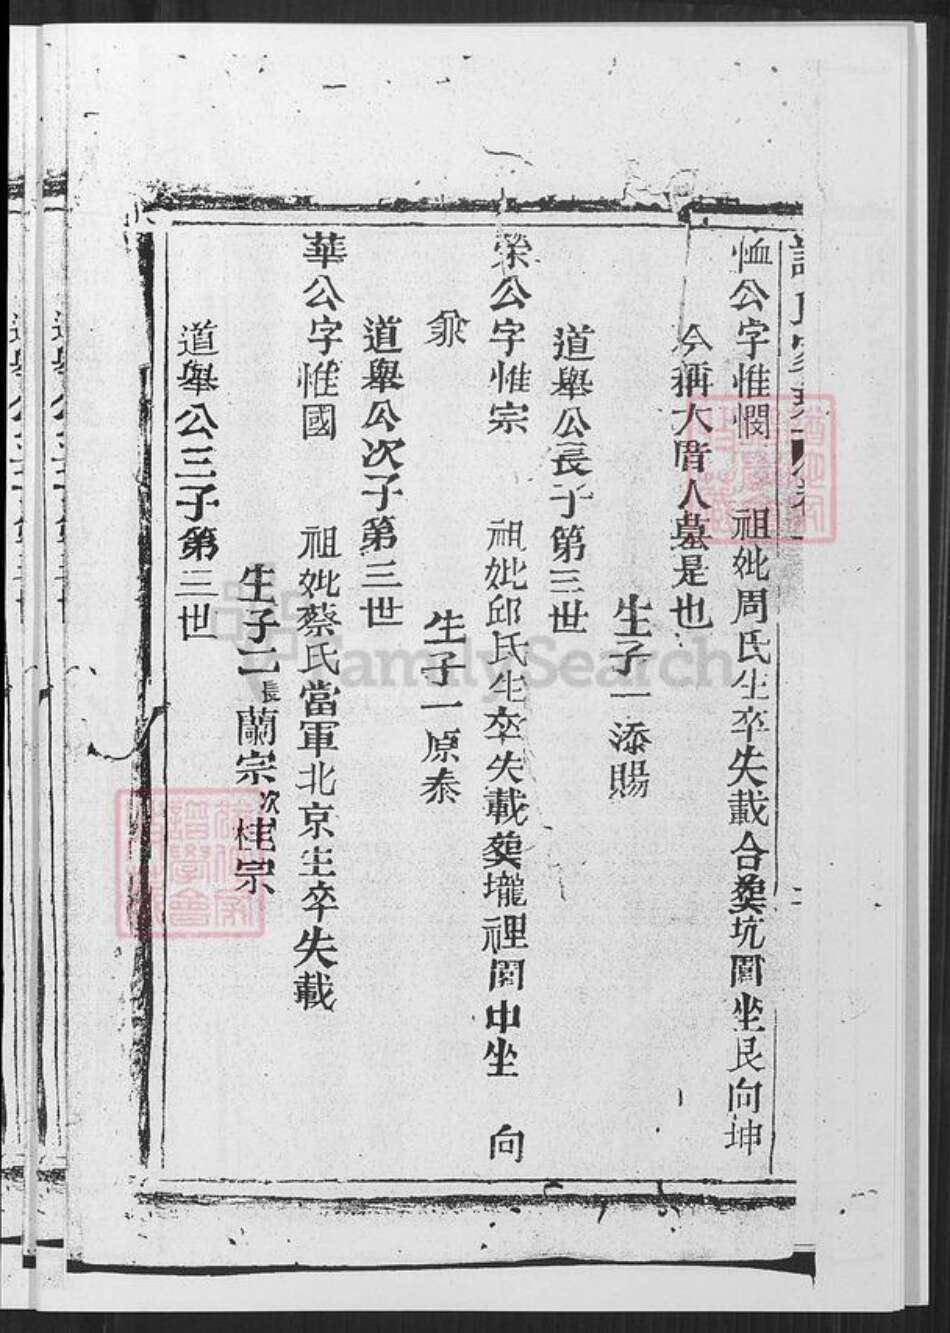 恤公字惟憫 祖妣周氏生卒失載合𦵏坑圍坐艮向坤
今稱大厝人墓是也
生子一添賜
道舉公長子第三世
榮公字惟宗 祖妣邱氏生卒失載𦵏壠裡圍中坐 向
生子一原泰
道舉公次子第三世
華公字惟國 祖妣蔡氏當軍北京生卒失載
生子二長蘭宗次桂宗
道舉公三子第三世
FamilySearch